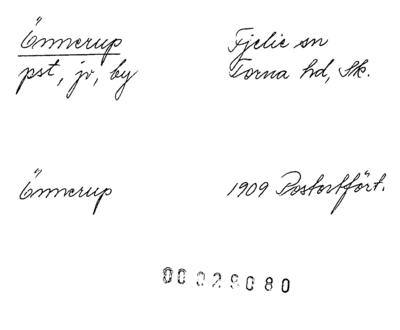 Önnerup Fjelie sn
pst, jv, by Torna hd, Sk.
Önnerup 1909 Postortfört.
00029080